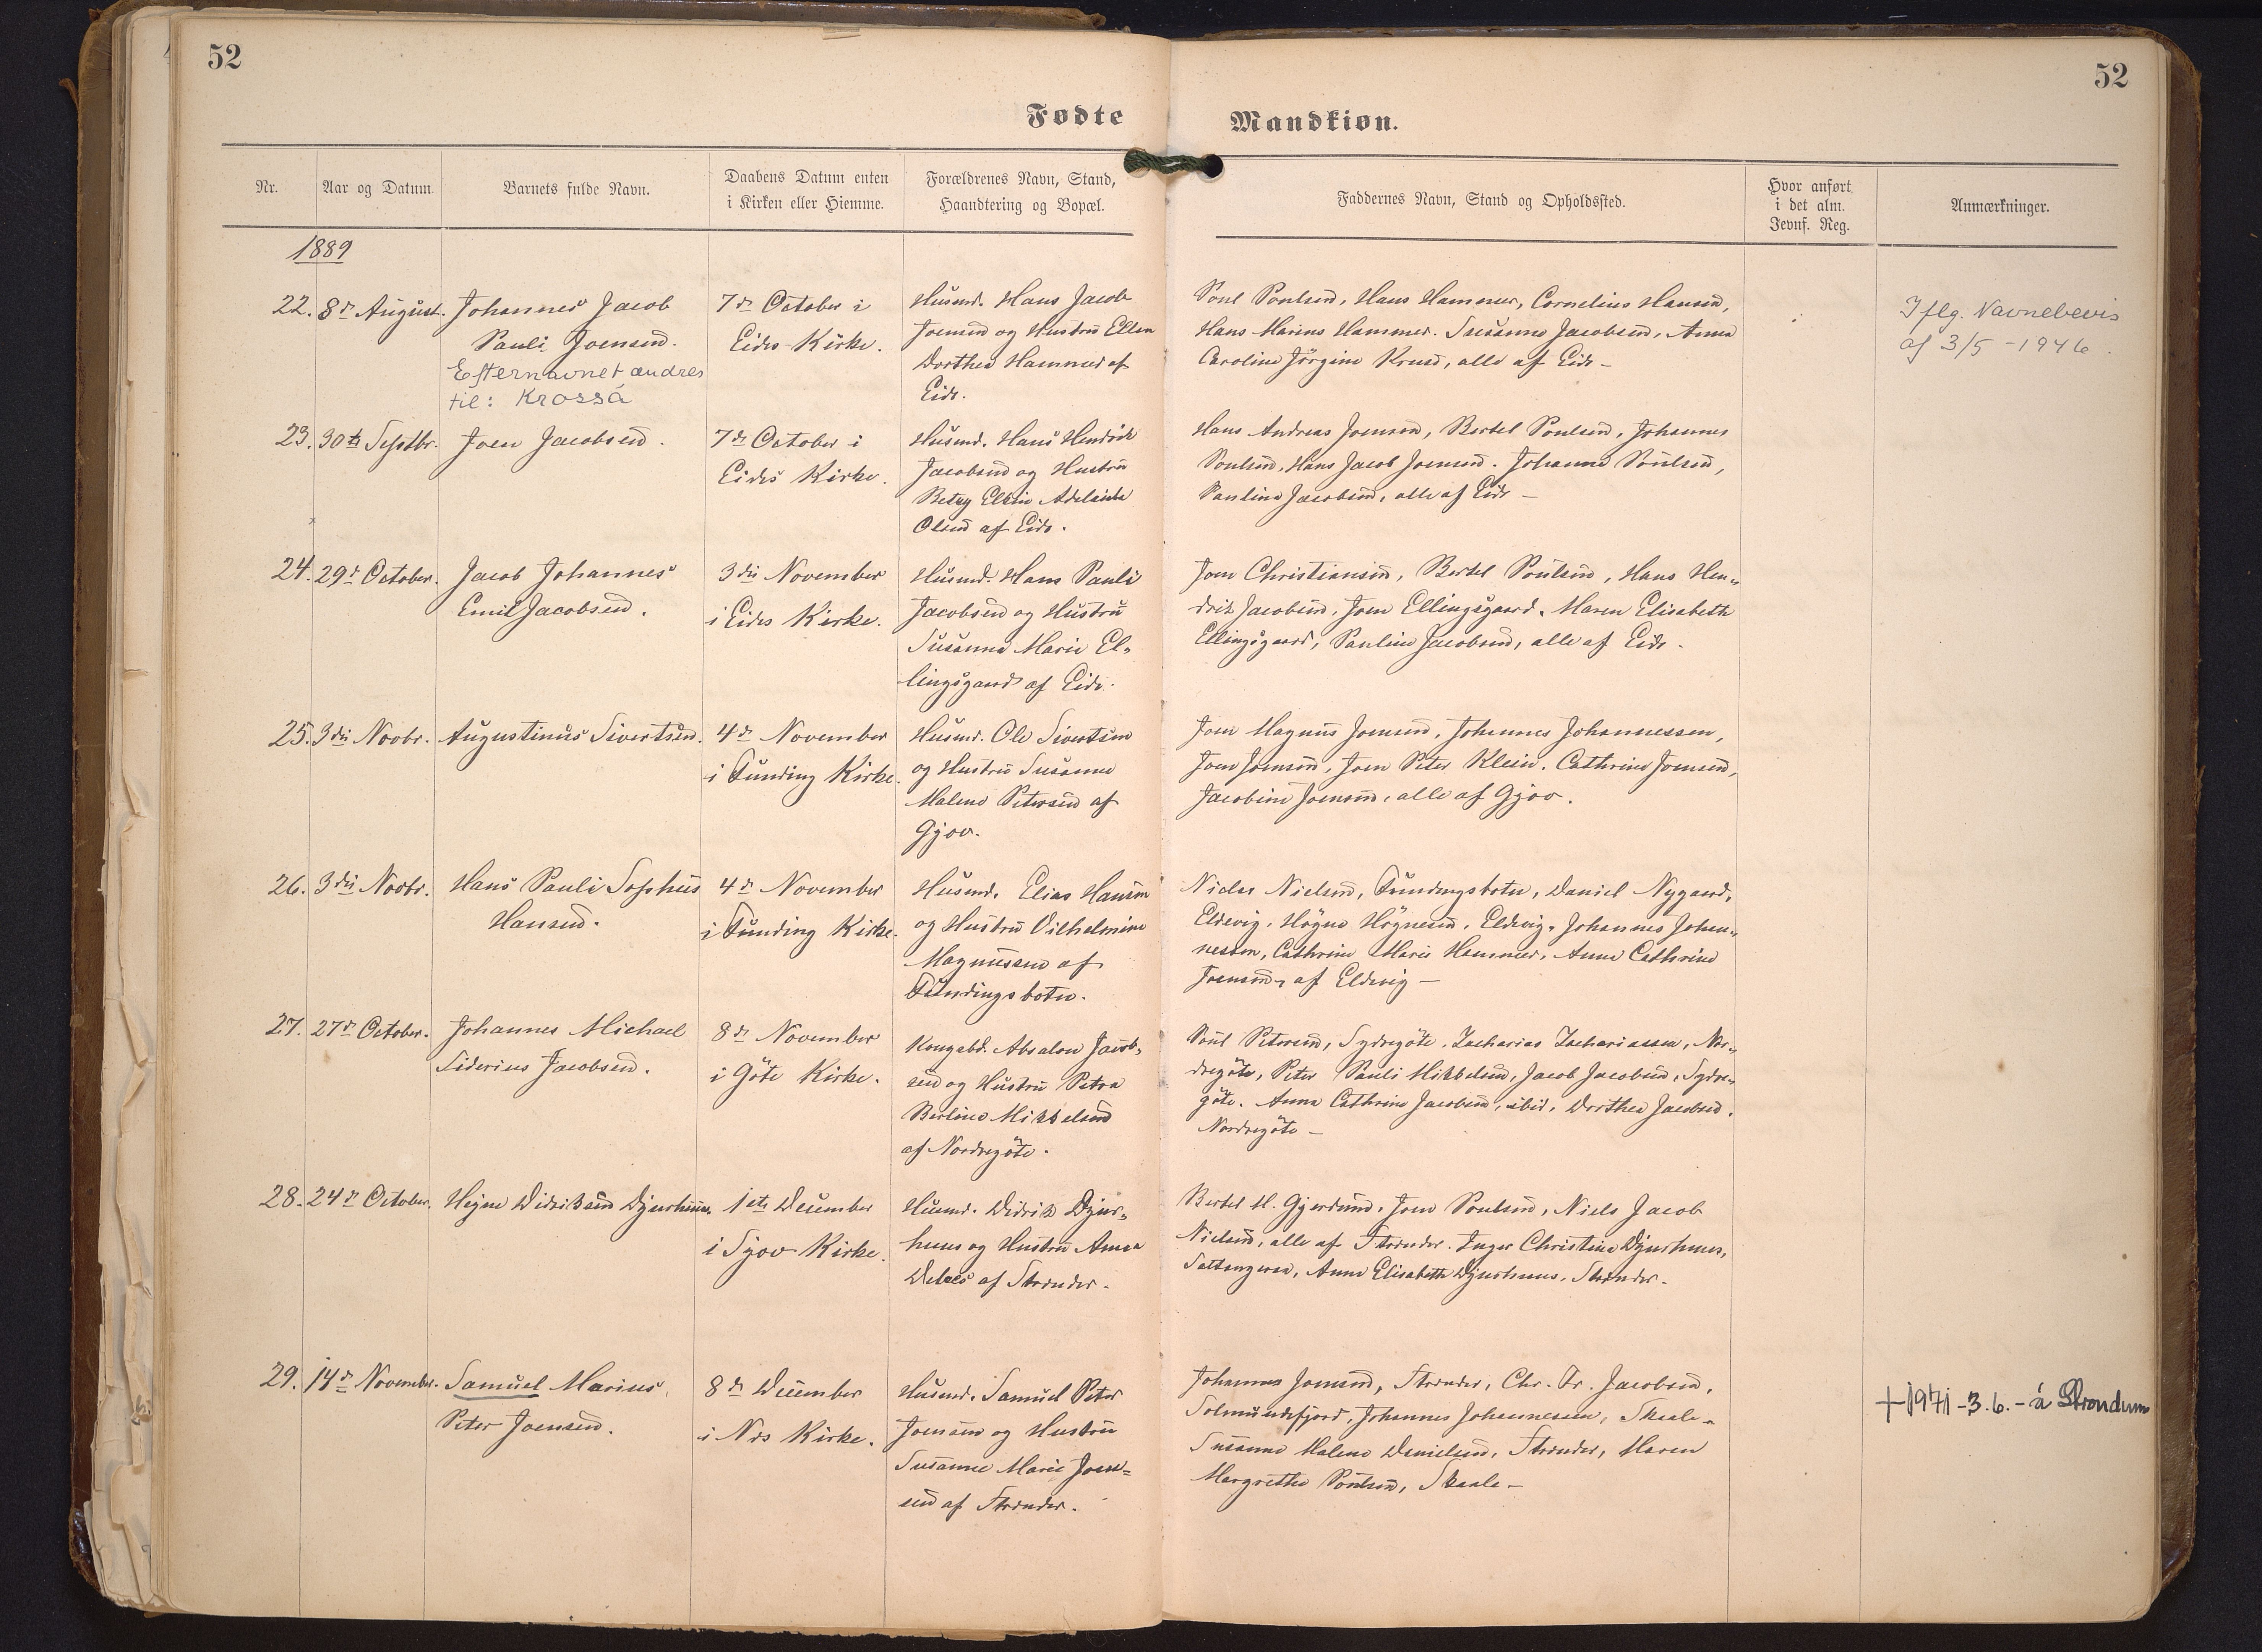 52
52
Fødte
Mandkiøn.
Nr.
Aar og Datum
Barnets fulde Navn.
Daabens Datum enten
i Kirken eller Hiemme.
Forældrenes Navn, Stand,
Haandtering og Bopæl.
Faddernes Navn, Stand og Opholdssted.
Hvor anført
i det alm.
Jevnf. Reg.
Anmærkninger.
1889
22.
8de August.
Johannes Jacob
Pauli Joensen.
Efternavnet ændres
til: Krossá
7de October i
Eides Kirke.
Husmd. Hans Jacob
Joensen og Hustru Ellen
Dorthea Hammer af
Eide.
Poul Poulsen, Hans Hammer, Cornelius Hansen,
Hans Marius Hammer. Susanne Jacobsen, Anna
Caroline Jörgine Kruse, alle af Eide –
Iflg. Navnebevis
af 3/5 - 1946.
23.
30te Septbr.
Joen Jacobsen.
7de October i
Eides Kirke.
Husmd. Hans Hendrik
Jacobsen og Hustru
Betsy Elsin Adelaide
Olsen af Eide.
Hans Andreas Joensen, Bertel Poulsen, Johannes
Poulsen, Hans Jacob Joensen. Johanne Poulsen,
Pauline Jacobsen, alle af Eide –
24.
29de October.
Jacob Johannes
Emil Jacobsen.
3die November
i Eides Kirke.
Husmd. Hans Pauli
Jacobsen og Hustru
Susanne Marie El-
lingsgaard af Eide.
Joen Christiansen, Bertel Poulsen, Hans Hen-
drik Jacobsen, Joen Ellingsgaard. Maren Elisabeth
Ellingsgaard, Pauline Jacobsen, alle af Eide.
25.
3die Novbr.
Augustinus Sivertsen.
4de November
i Funding Kirke.
Husmd. Ole Sivertsen
og Hustru Susanne
Malene Petersen af
Gjov.
Joen Magnus Joensen, Johannes Johannessen,
Joen Joensen, Joen Peter Klein. Cathrine Joensen,
Jacobine Joensen, alle af Gjov.
26.
3die Novbr.
Hans Pauli Sophus
Hansen.
4de November
i Funding Kirke.
Husmd. Elias Hansen
og Hustru Vilhelmine
Magnussen af
Fundingsbotn.
Niclas Nielsen, Fundingsbotn, Daniel Nygaard,
Eldevig, Högne Högnesen, Eldevig. Johannes Johan-
nessen, Cathrine Marie Hammer, Anne Cathrine
Joensen, af Eldevig –
27.
27de October.
Johannes Michael
Siderius Jacobsen.
8de November
i Göte Kirke.
Kongsbd. Absalon Jacob-
sen og Hustru Petra
Berline Mikkelsen
af Nordregöte.
Poul Petersen, Sydregöte, Zacharias Zachariassen, Nor-
dregöte, Peter Pauli Mikkelsen, Jacob Jacobsen, Sydre-
göte. Anna Cathrine Jacobsen, ibid, Dorthea Jacobsen,
Nordregöte –
28.
24de October.
Hejne Didriksen Djurhuus.
1ste December
i Sjov Kirke.
Husmd. Didrik Djur-
huus og Hustru Anna
af Strender.
Bertel M. Gjerdum, Joen Poulsen, Niels Jacob
Nielsen, alle af Strender. Inger Christine Djurhuus,
Saltangeraa, Anne Elisabeth Djurhuus, Strender.
29.
14de November.
Samuel Marius
Peter Joensen.
8de December
i Nes Kirke.
Husmd. Samuel Peter
Joensen og Hustru
Susanne Marie Joen-
sen af Strender.
Johannes Joensen, Strender, Chr. Fr. Jacobsen,
Solmundefjord, Johannes Johannessen, Skaale.
Susanne Malene Danielsen, Strender, Maren
Margrethe Poulsen, Skaale –
+ 1971-3.6. - á Strondum